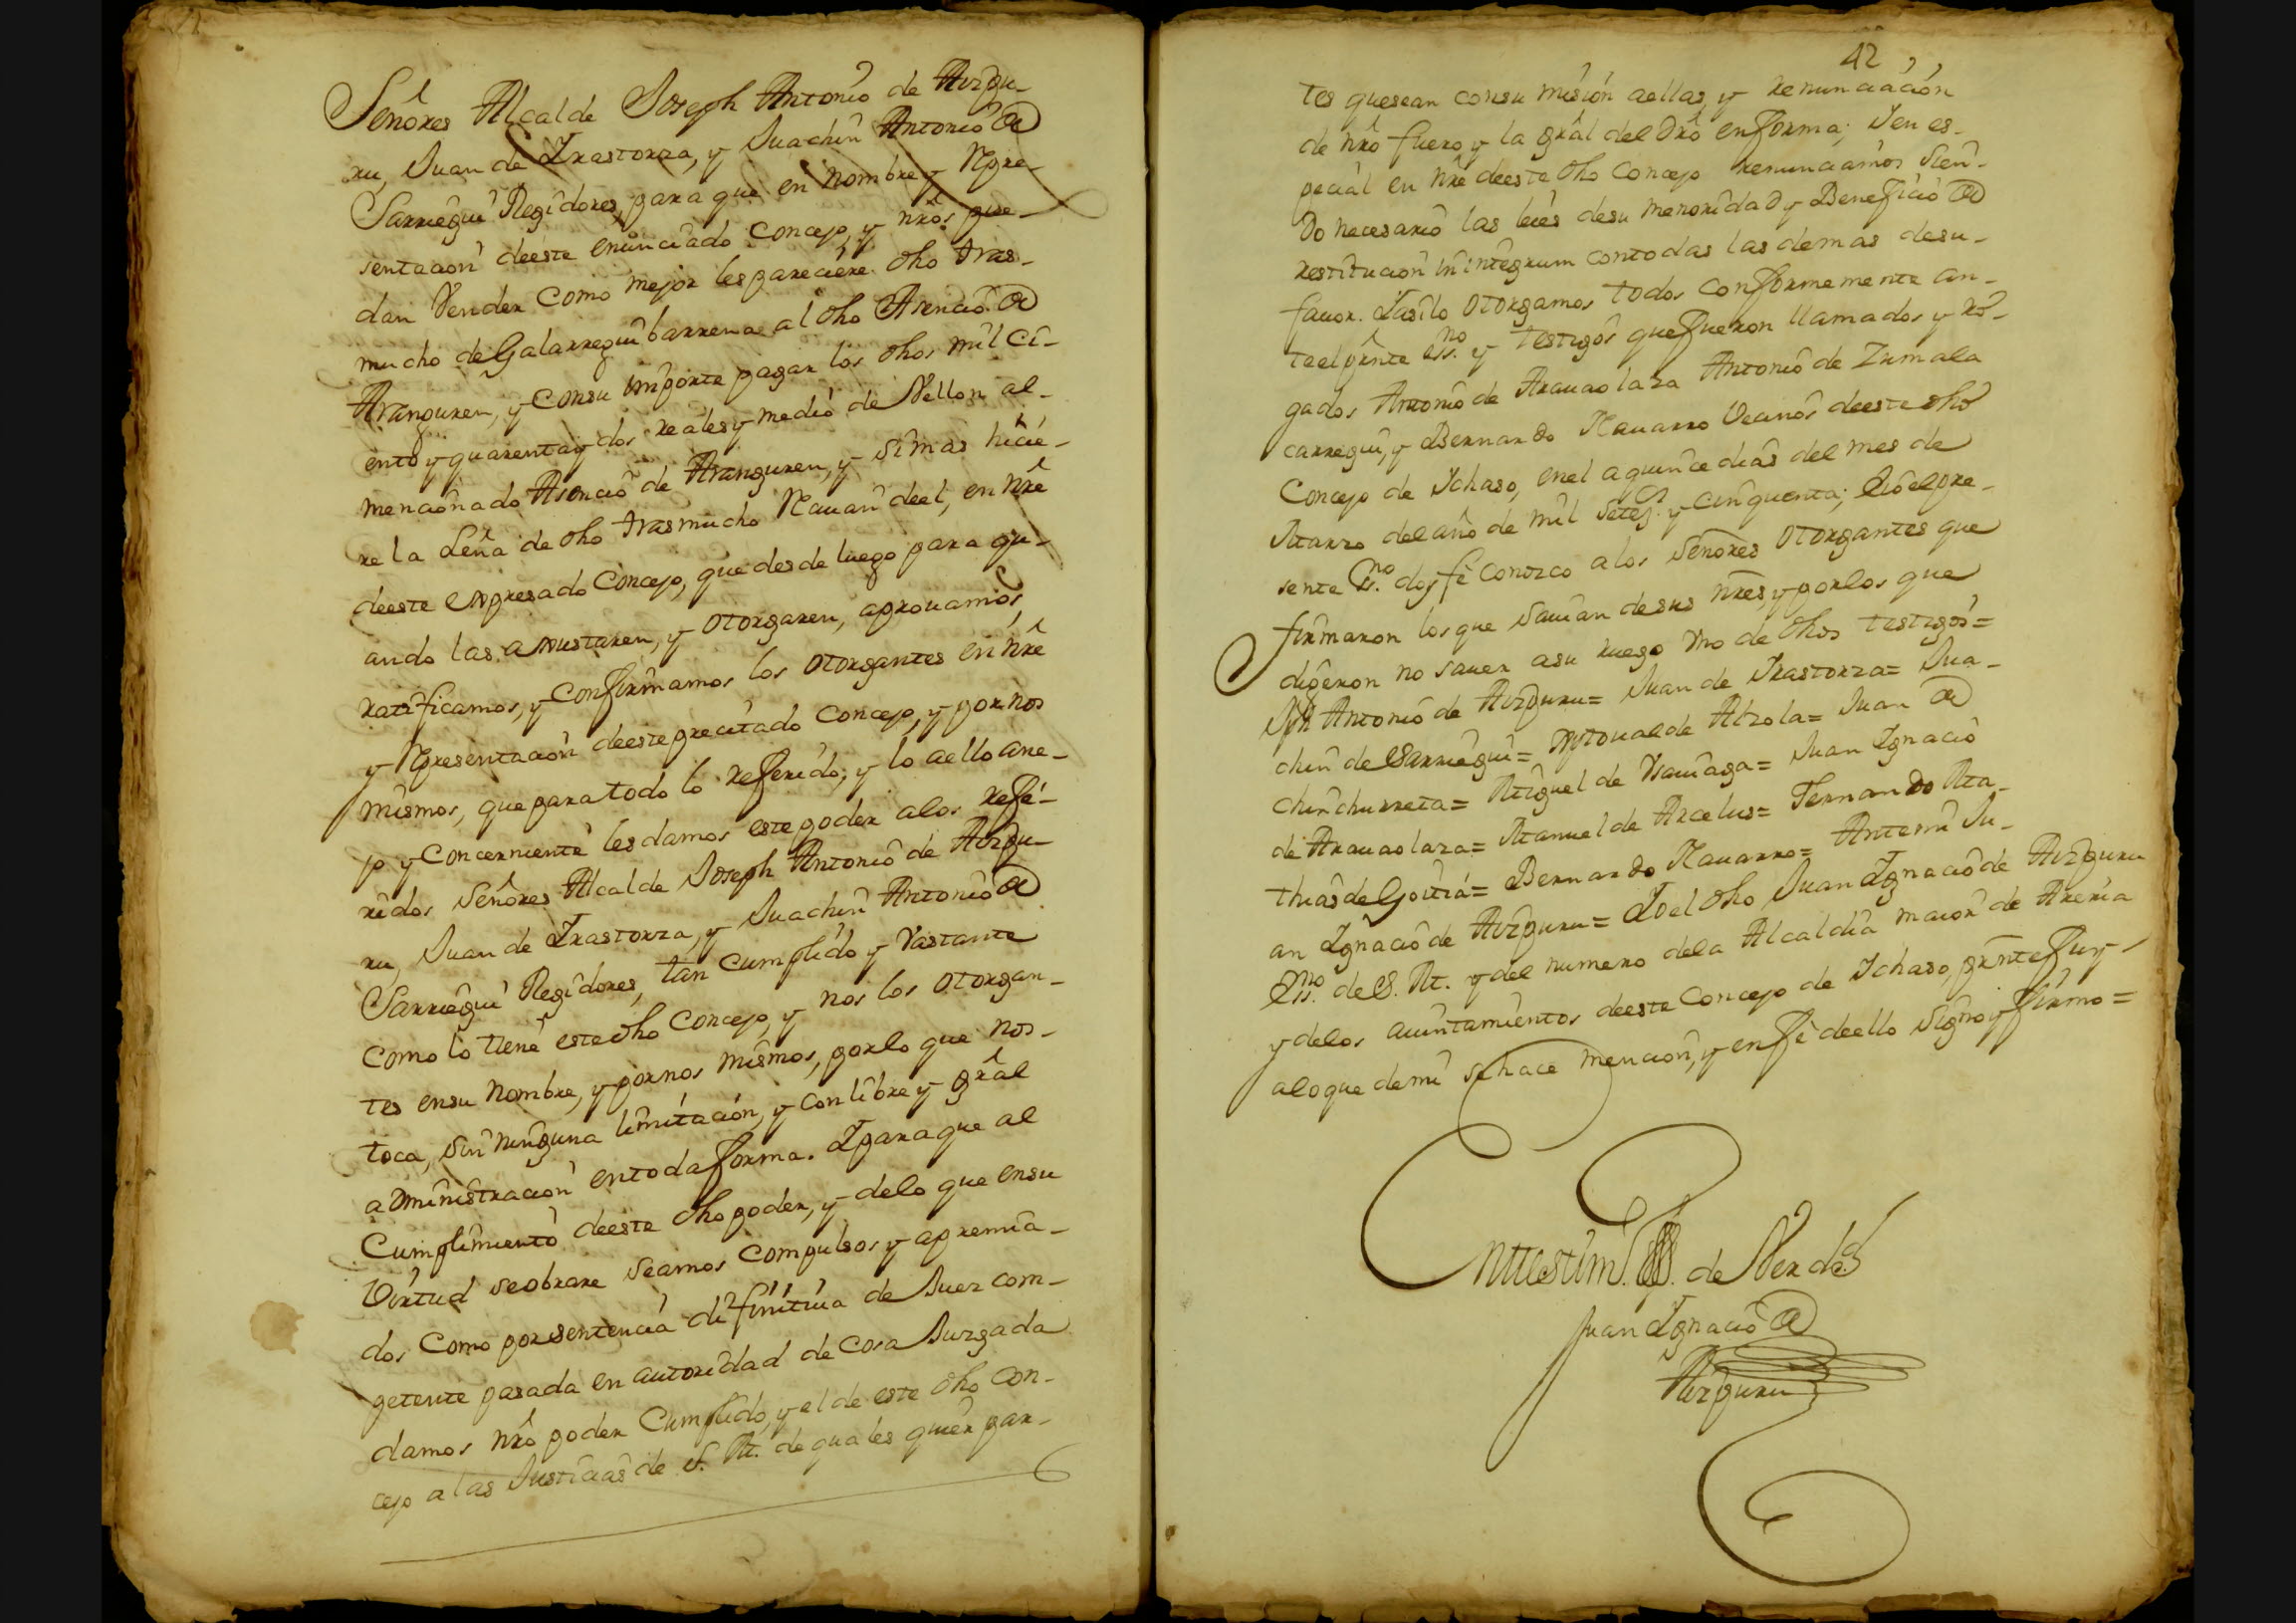 Señores Alcalde Joseph Antonio de Aizpu-
ru, Juan de Irastorza, y Juachin Antonio de
Sarriegui Regidores, para que en nombre y Rpre-
sentacion deeste enunciado Concejo, y nros pue-
dan Vender Como mejor les pareciere dho tras-
mucho de Galarreguibarrena al dho Asencio de
Aranguren, y Consu importe pagar los dhos mil ci-
ento y quarenta y dos reales y medio de Vellon al-
mencionado Asencio de Aranguren, y si mas hicie-
re la Leña de dho trasmucho Navan deel, en nre
deeste expresado Concejo, que desde luego para qu-
ando las ajustaren, y otorgaren, aprouamos,
ratificamos, y Confirmamos los otorgantes en nre
y Rpresentacion deeste precitado Concejo, y por nos
mismos, que para todo lo referido, y lo aello ane-
jo y Concerniente les damos este poder alos refe-
ridos Señores Alcalde Joseph Antonio de Aizpu-
ru, Juan de Irastorza, y Juachin Antonio de
Sarriegui Regidores, tan Cumplido y Vastante
Como lo tiene este dho Concejo, y nos los otorgan-
tes ensu nombre, y por nos mismos, por lo que nos-
toca, sin ninguna limitacion, y con libre y gral
administracion entoda forma. Y para que al
Cumplimiento deeste dho poder, y delo que ensu
Virtud seobrare seamos Compulsos y apremia-
dos Como por sentencia difinitiua de Juez com-
petente pasada en autoridad de Cosa Juzgada
damos nro poder Cumplido, y el de este dho Con-
cejo a las Justicias de S. M. de quales quier par-
42
tes quesean consu mision aellas, y renunciacion
de nro fuero, y la gral del dro enforma; y en es-
pecial en nre deeste dho Concejo renunciamos sien-
do necesario las leies desu menoridad y Beneficio de
restitucion in integrum contodas las demas desu-
fauor. Y asi lo otorgamos todos conformemente an-
teel prnte essno. y testigos quefueron llamados y ro-
gados Antonio de Arauaolaza Antonio de Zumala
carregui, y Bernardo Nauarro Vecinos deeste dho
Concejo de Ichaso, enel a quince dias del mes de
Marzo del año de mil setez.s y cinquenta; e yo el pre-
sente ssno. doy fe Conozco a los Señores otorgantes que
firmaron los que sauian de sus nres, y por los que
digeron no sauer asu ruego vno de dhos testigos=
Jph Antonio de Aizpuru= Juan de Irastorza= Jua-
chin de Sarriegui= Xptoual de Alzola= Juan de
chinchurreta= Miguel de Ysauiaga= Juan Ignacio
de Arauaolaza= Manuel de Arcelus= Fernando Ma-
thias de Goitia= Bernardo Nauarro= Antemi Ju-
an Ignacio de Aizpuru= Yo el dho Juan Ignacio de Aizpuru
essno. de S. M. y del numero dela Alcaldia maior de Areria
y delos aiuntamientos deeste Concejo de Ichaso, prnte fuy
alo que demi se hace mencion, y en fe deello signo y firmo=
Juan Ignacio de
Aizpuru